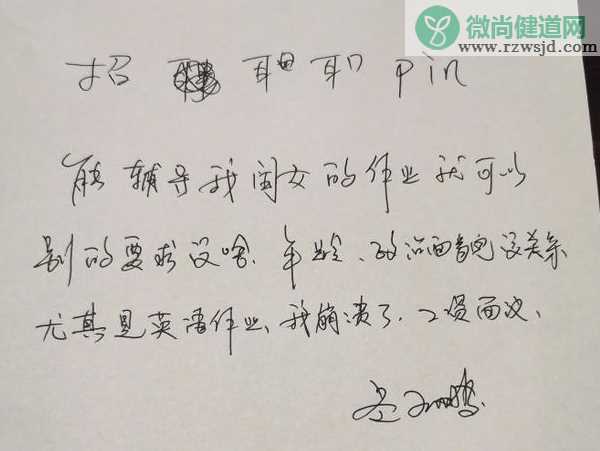 微尚健道网
www.rzwsjd.com
招 pin
能辅导我闺女的作业就可以
别的要求没啥.年龄、政治面貌没关系
尤其是英语作业、我崩溃了.工资面议、